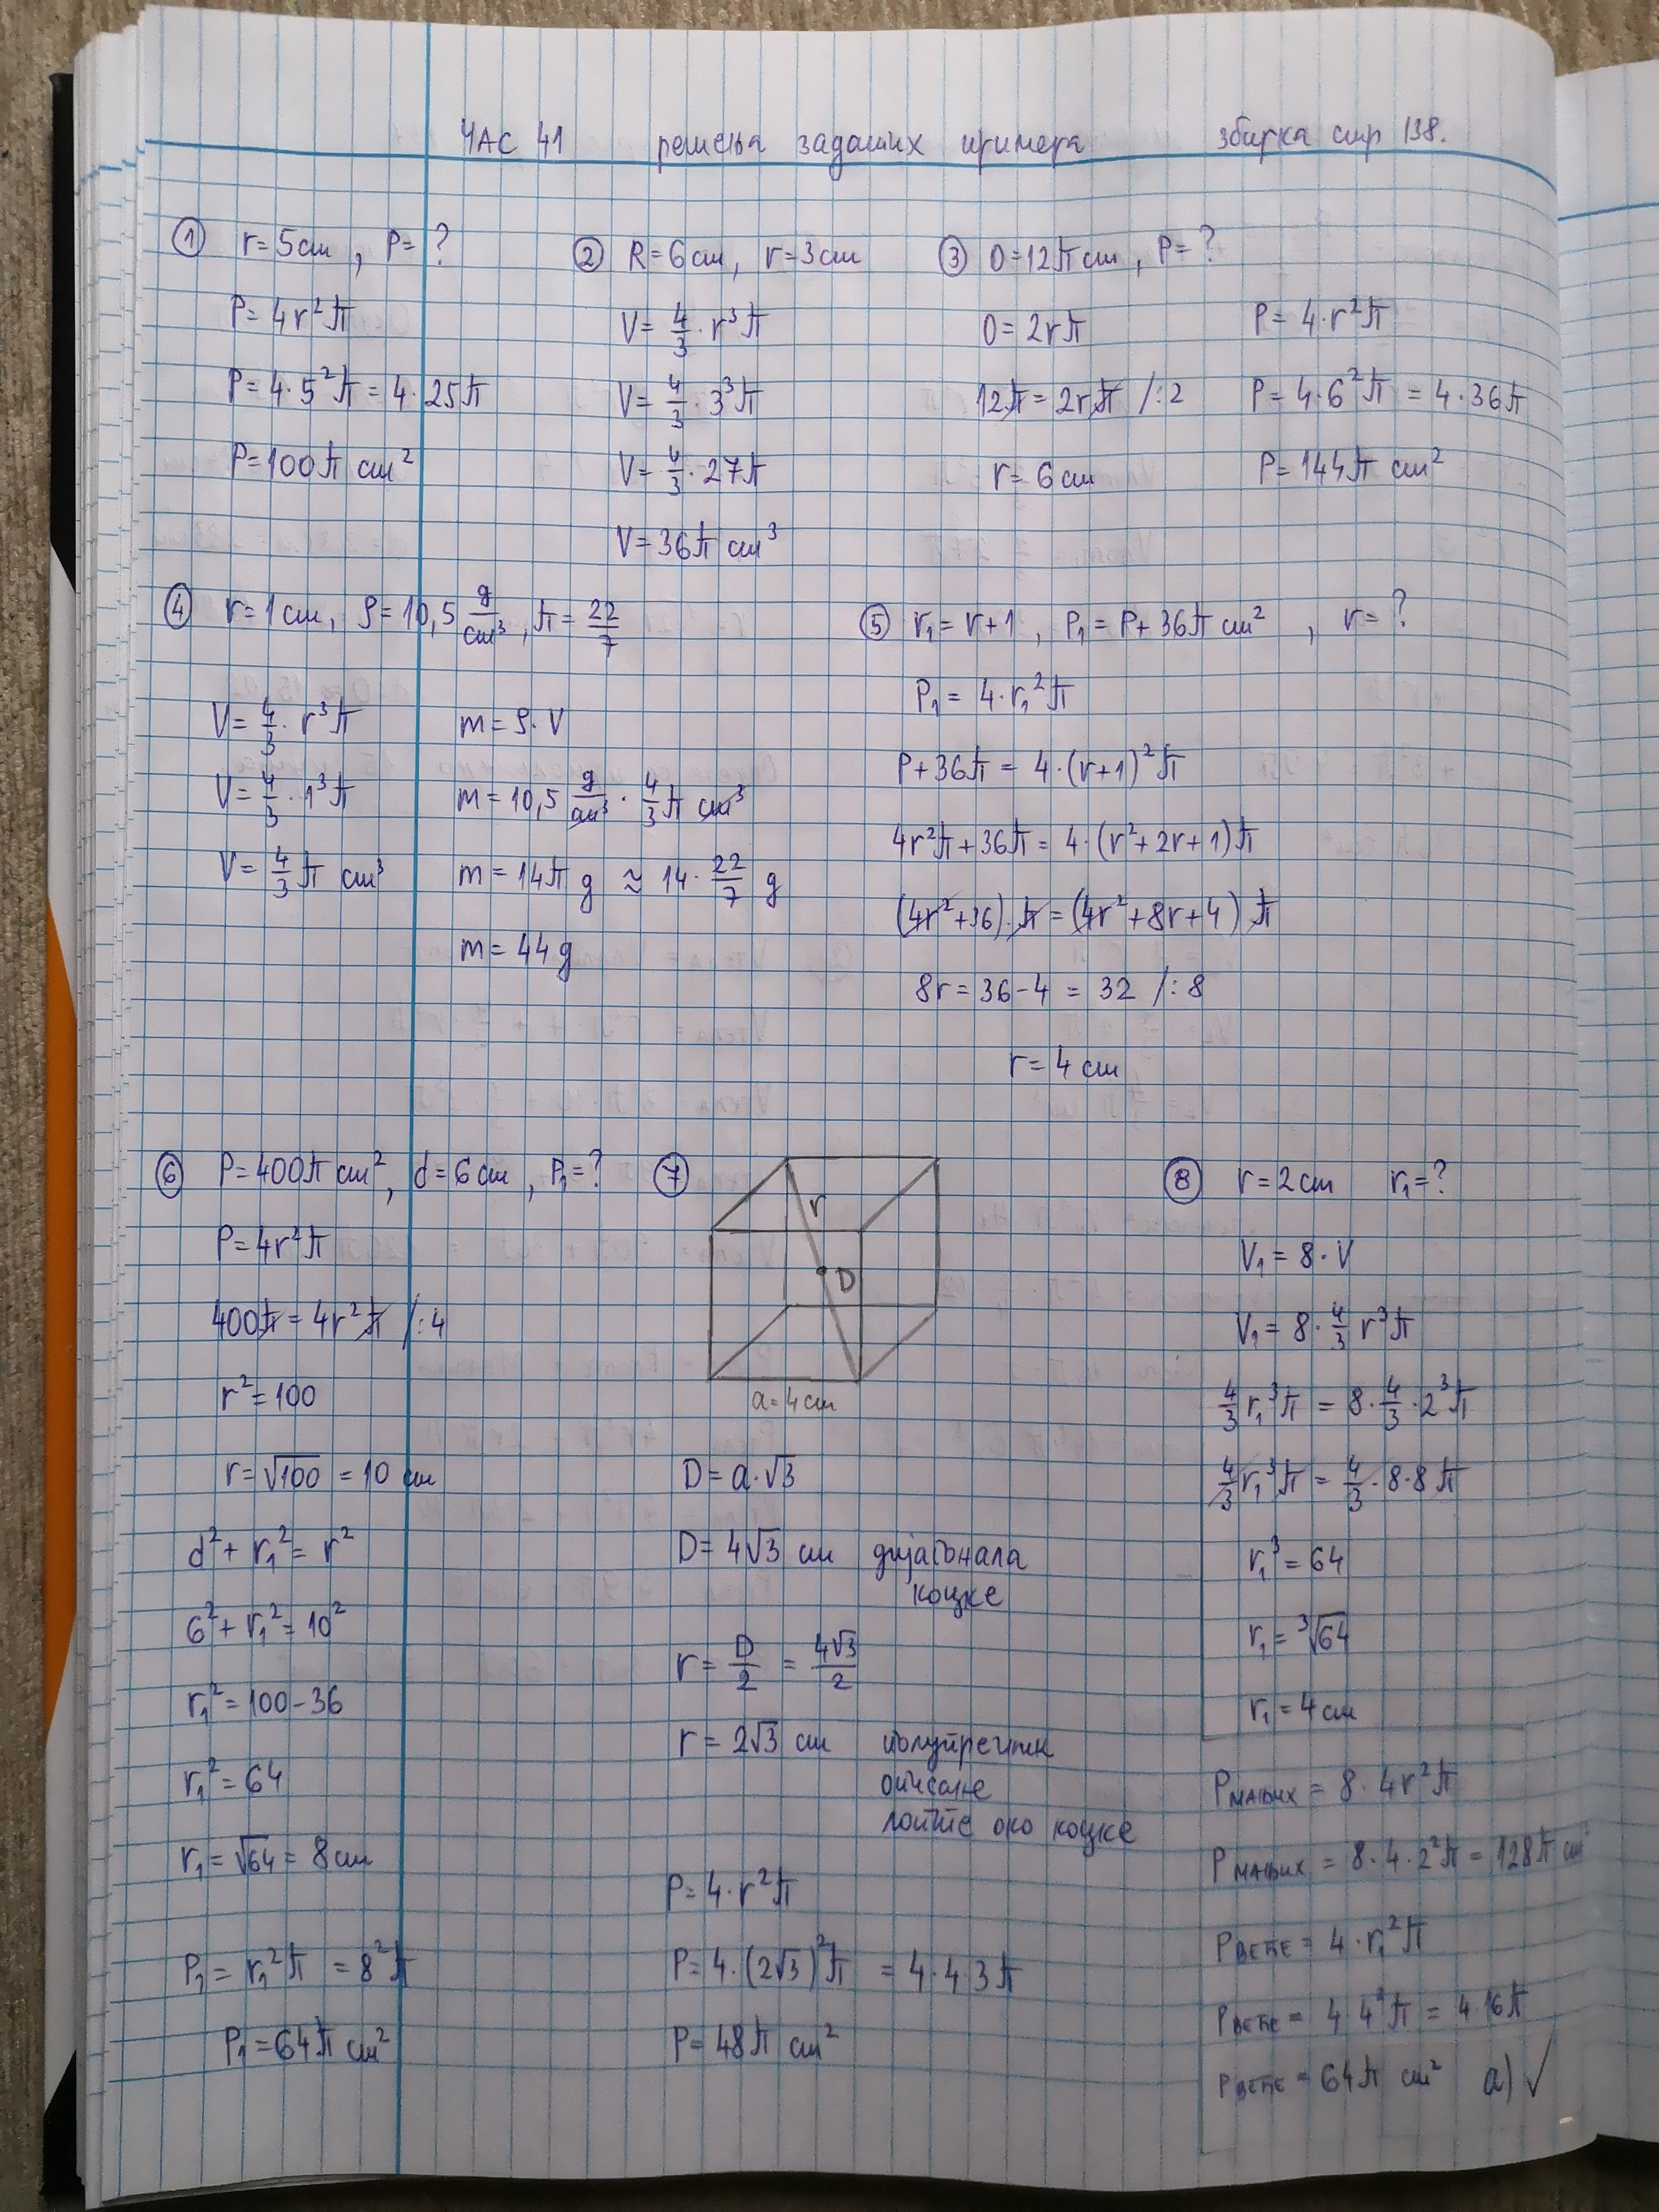 ЧАС 41 решења задатих примера збирка стр 138.
① r=5cm, P=?
P=4r²π
P=4·5²π=4·25π
P=100π cm²
② R=6cm, r=3cm
V=4/3·r³π
V=4/3·3³π
V=4/3·27π
V=36π cm³
③ O=12πcm, P=?
O=2rπ
12π=2rπ /:2
r=6cm
P=4·r²π
P=4·6²π=4·36π
P=144π cm²
④ r=1cm, ρ=10,5 g/cm³, π=22/7
V=4/3·r³π
V=4/3·1³π
V=4/3π cm³
m=ρ·V
m=10,5 g/cm³·4/3π cm³
m=14π g ≈ 14·22/7 g
m=44g
⑤ r₁=r+1, P₁=P+36π cm², r=?
P₁=4·r₁²π
P+36π=4·(r+1)²π
4r²π+36π=4·(r²+2r+1)π
(4r²+36)·π=(4r²+8r+4)π
8r=36-4=32 /:8
r=4cm
⑥ P=400π cm², d=6cm, P₁=?
P=4r²π
400π=4r²π /:4
r²=100
r=√100=10 cm
d²+r₁²=r²
6²+r₁²=10²
r₁²=100-36
r₁²=64
r₁=√64=8cm
P₁=r₁²π=8²π
P₁=64π cm²
⑦
r
D
a=4cm
D=a·√3
D=4√3 cm дијагонала
коцке
r=D/2=4√3/2
r=2√3 cm полупречник
описане
лопте око коцке
P=4·r²π
P=4·(2√3)²π=4·4·3π
P=48π cm²
⑧ r=2cm r₁=?
V₁=8·V
V₁=8·4/3 r³π
4/3 r₁³π=8·4/3·2³π
4/3 r₁³π=4/3·8·8π
r₁³=64
r₁=³√64
r₁=4cm
Pмањих=8·4r²π
Pмањих=8·4·2²π=128π cm²
Pвеће=4·r₁²π
Pвеће=4·4²π=4·16π
Pвеће=64π cm² а)✓